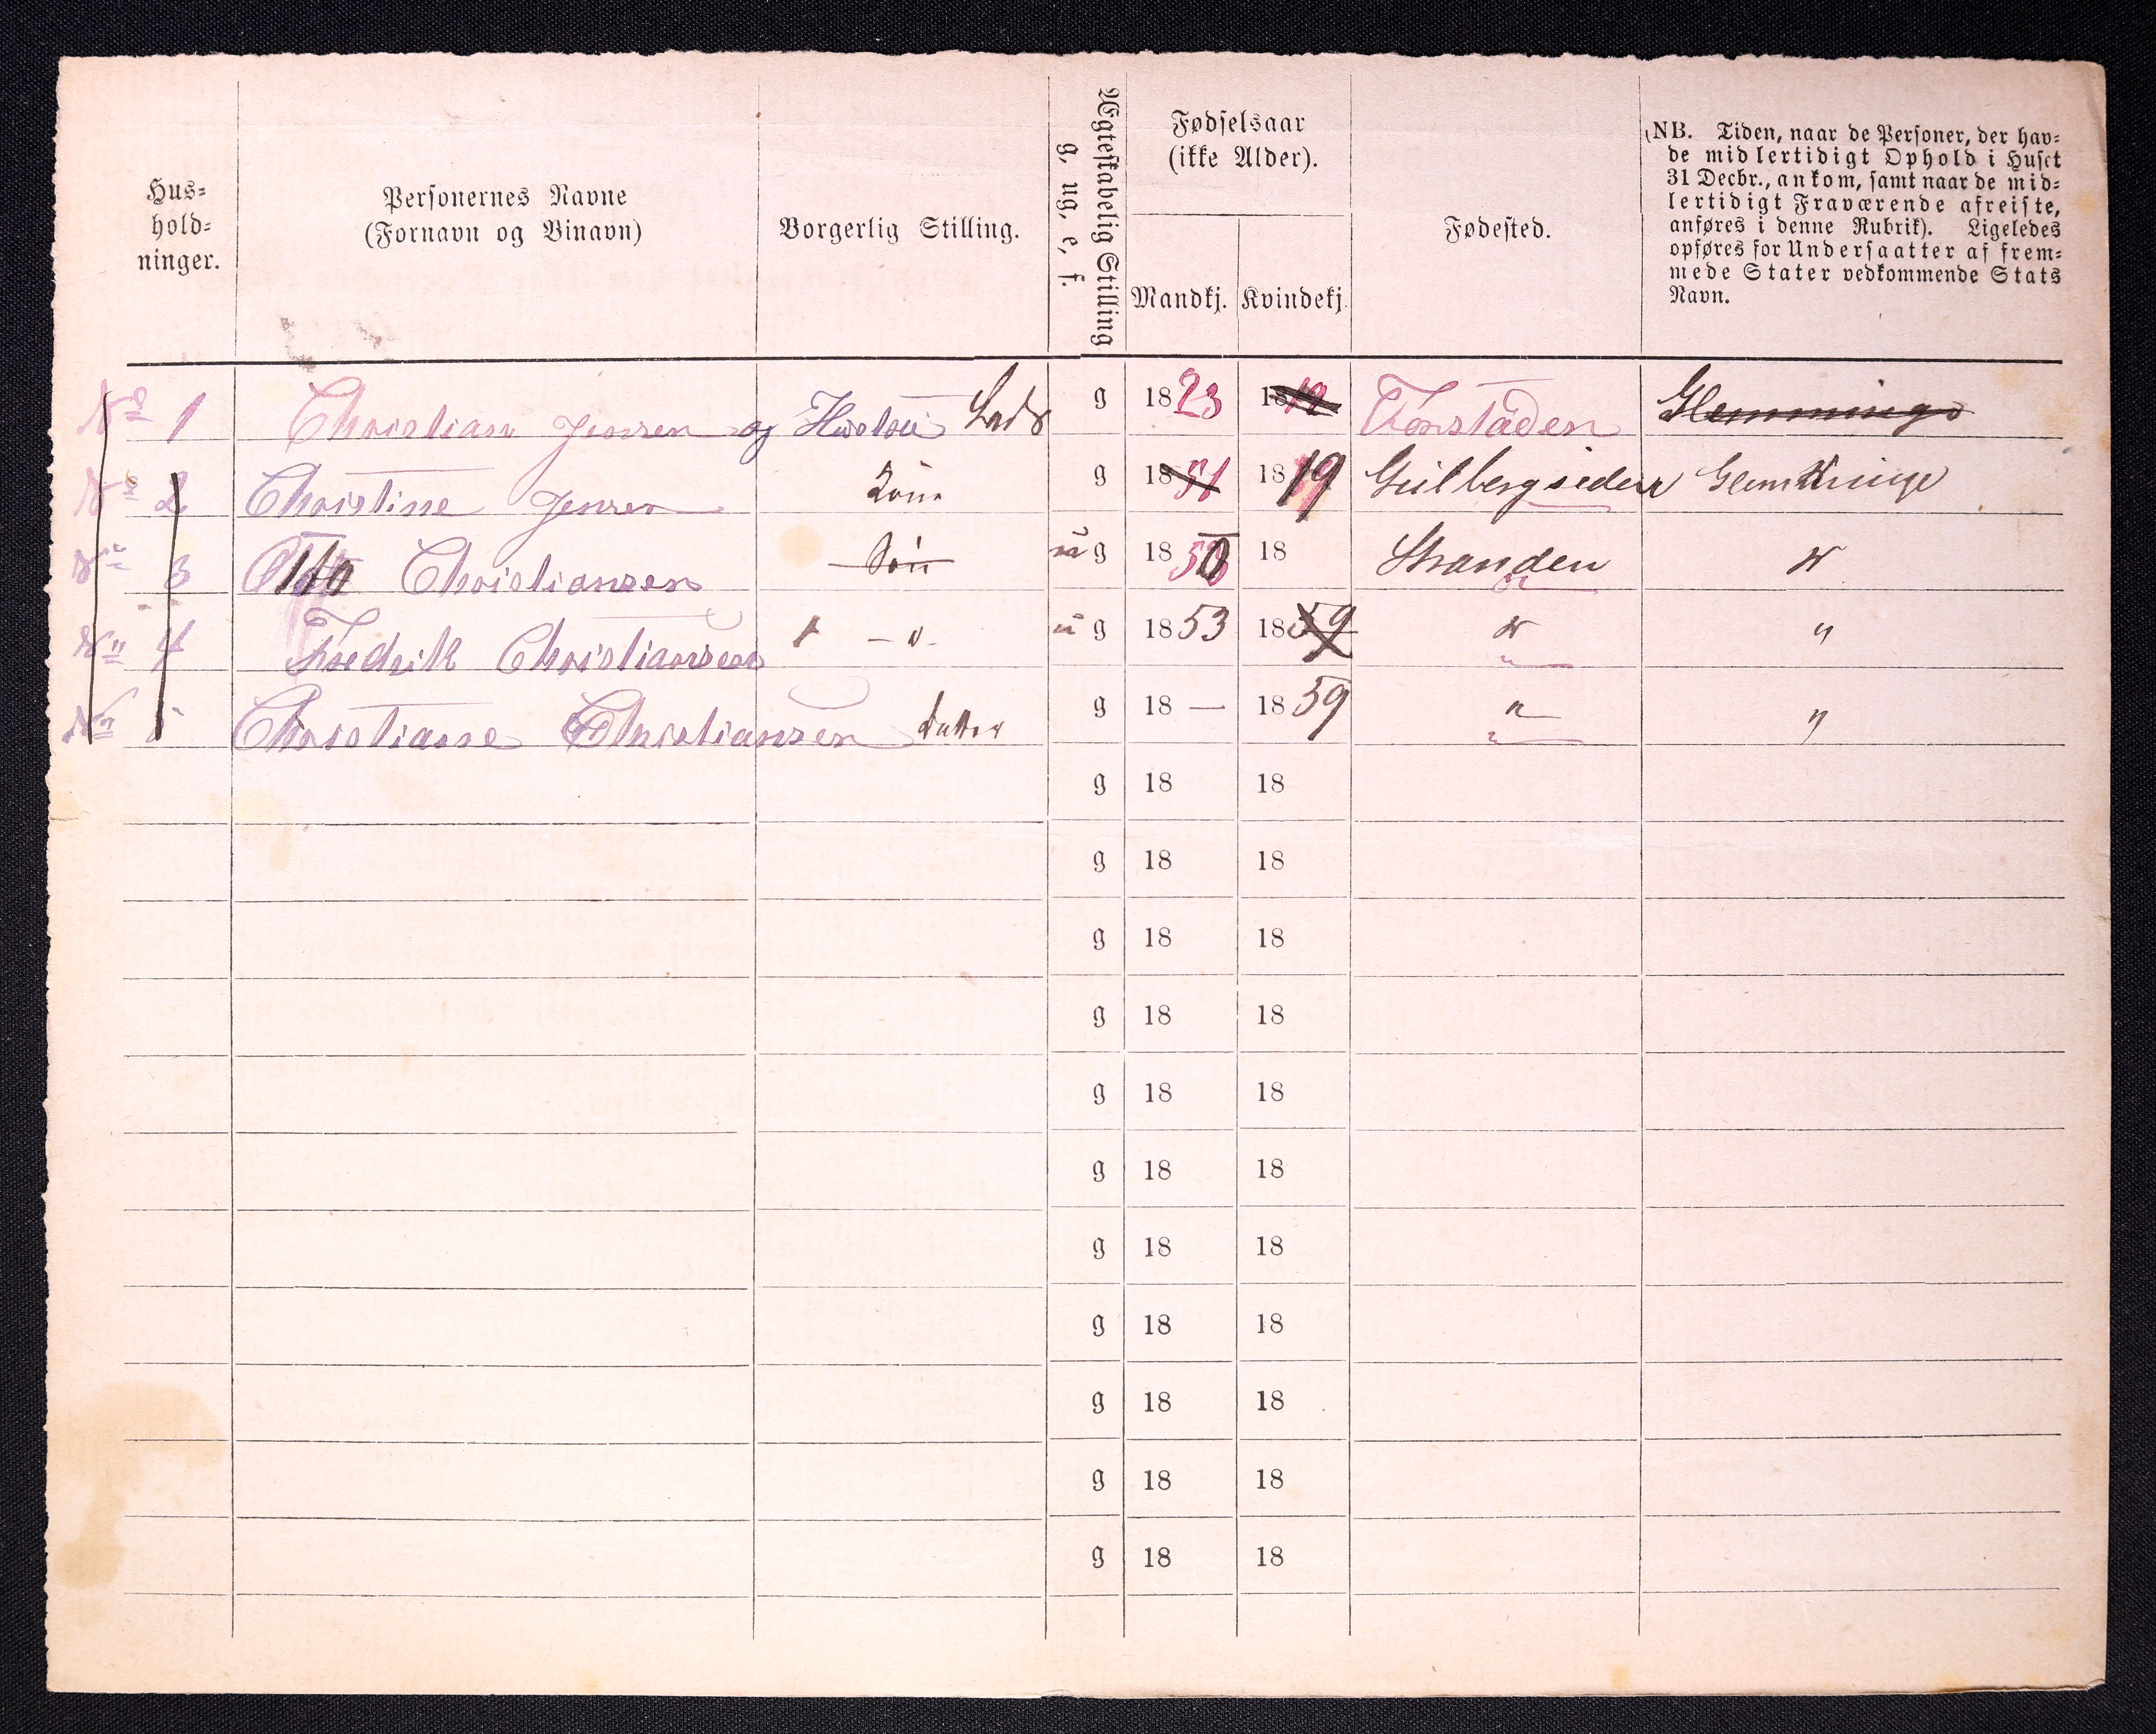 Hus=
hold=
ninger.
Personernes Navne
(Fornavn og Binavn)
Borgerlig Stilling.
Ægteskabelig Stilling
g, ug, e, f.
Fødselsaar
(ikke Alder).
Mandkj. Kvindekj.
Fødested.
(NB. Tiden, naar de Personer, der hav=
de midlertidigt Ophold i Huset
31 Decbr., ankom, samt naar de mid=
lertidigt Fraværende afreiste,
anføres i denne Rubrik). Ligeledes
opføres for Undersaatter af frem=
mede Stater vedkommende Stats
Navn.
No 1 Christian Jensen og Hustru g 1823 18 Glemminge
No 2 Christine Jensen Kone g 1851 1819 Gulbergsiden Glemminge
No 3 Otto Christiansen Søn u g 1850 18 Stranden "
No 4 Fredrik Christiansen - " - u g 1853 1859 " "
No 5 Christianse Christiansen datter g 18 — 1859 " "
g 18 18
g 18 18
g 18 18
g 18 18
g 18 18
g 18 18
g 18 18
g 18 18
g 18 18
g 18 18
g 18 18